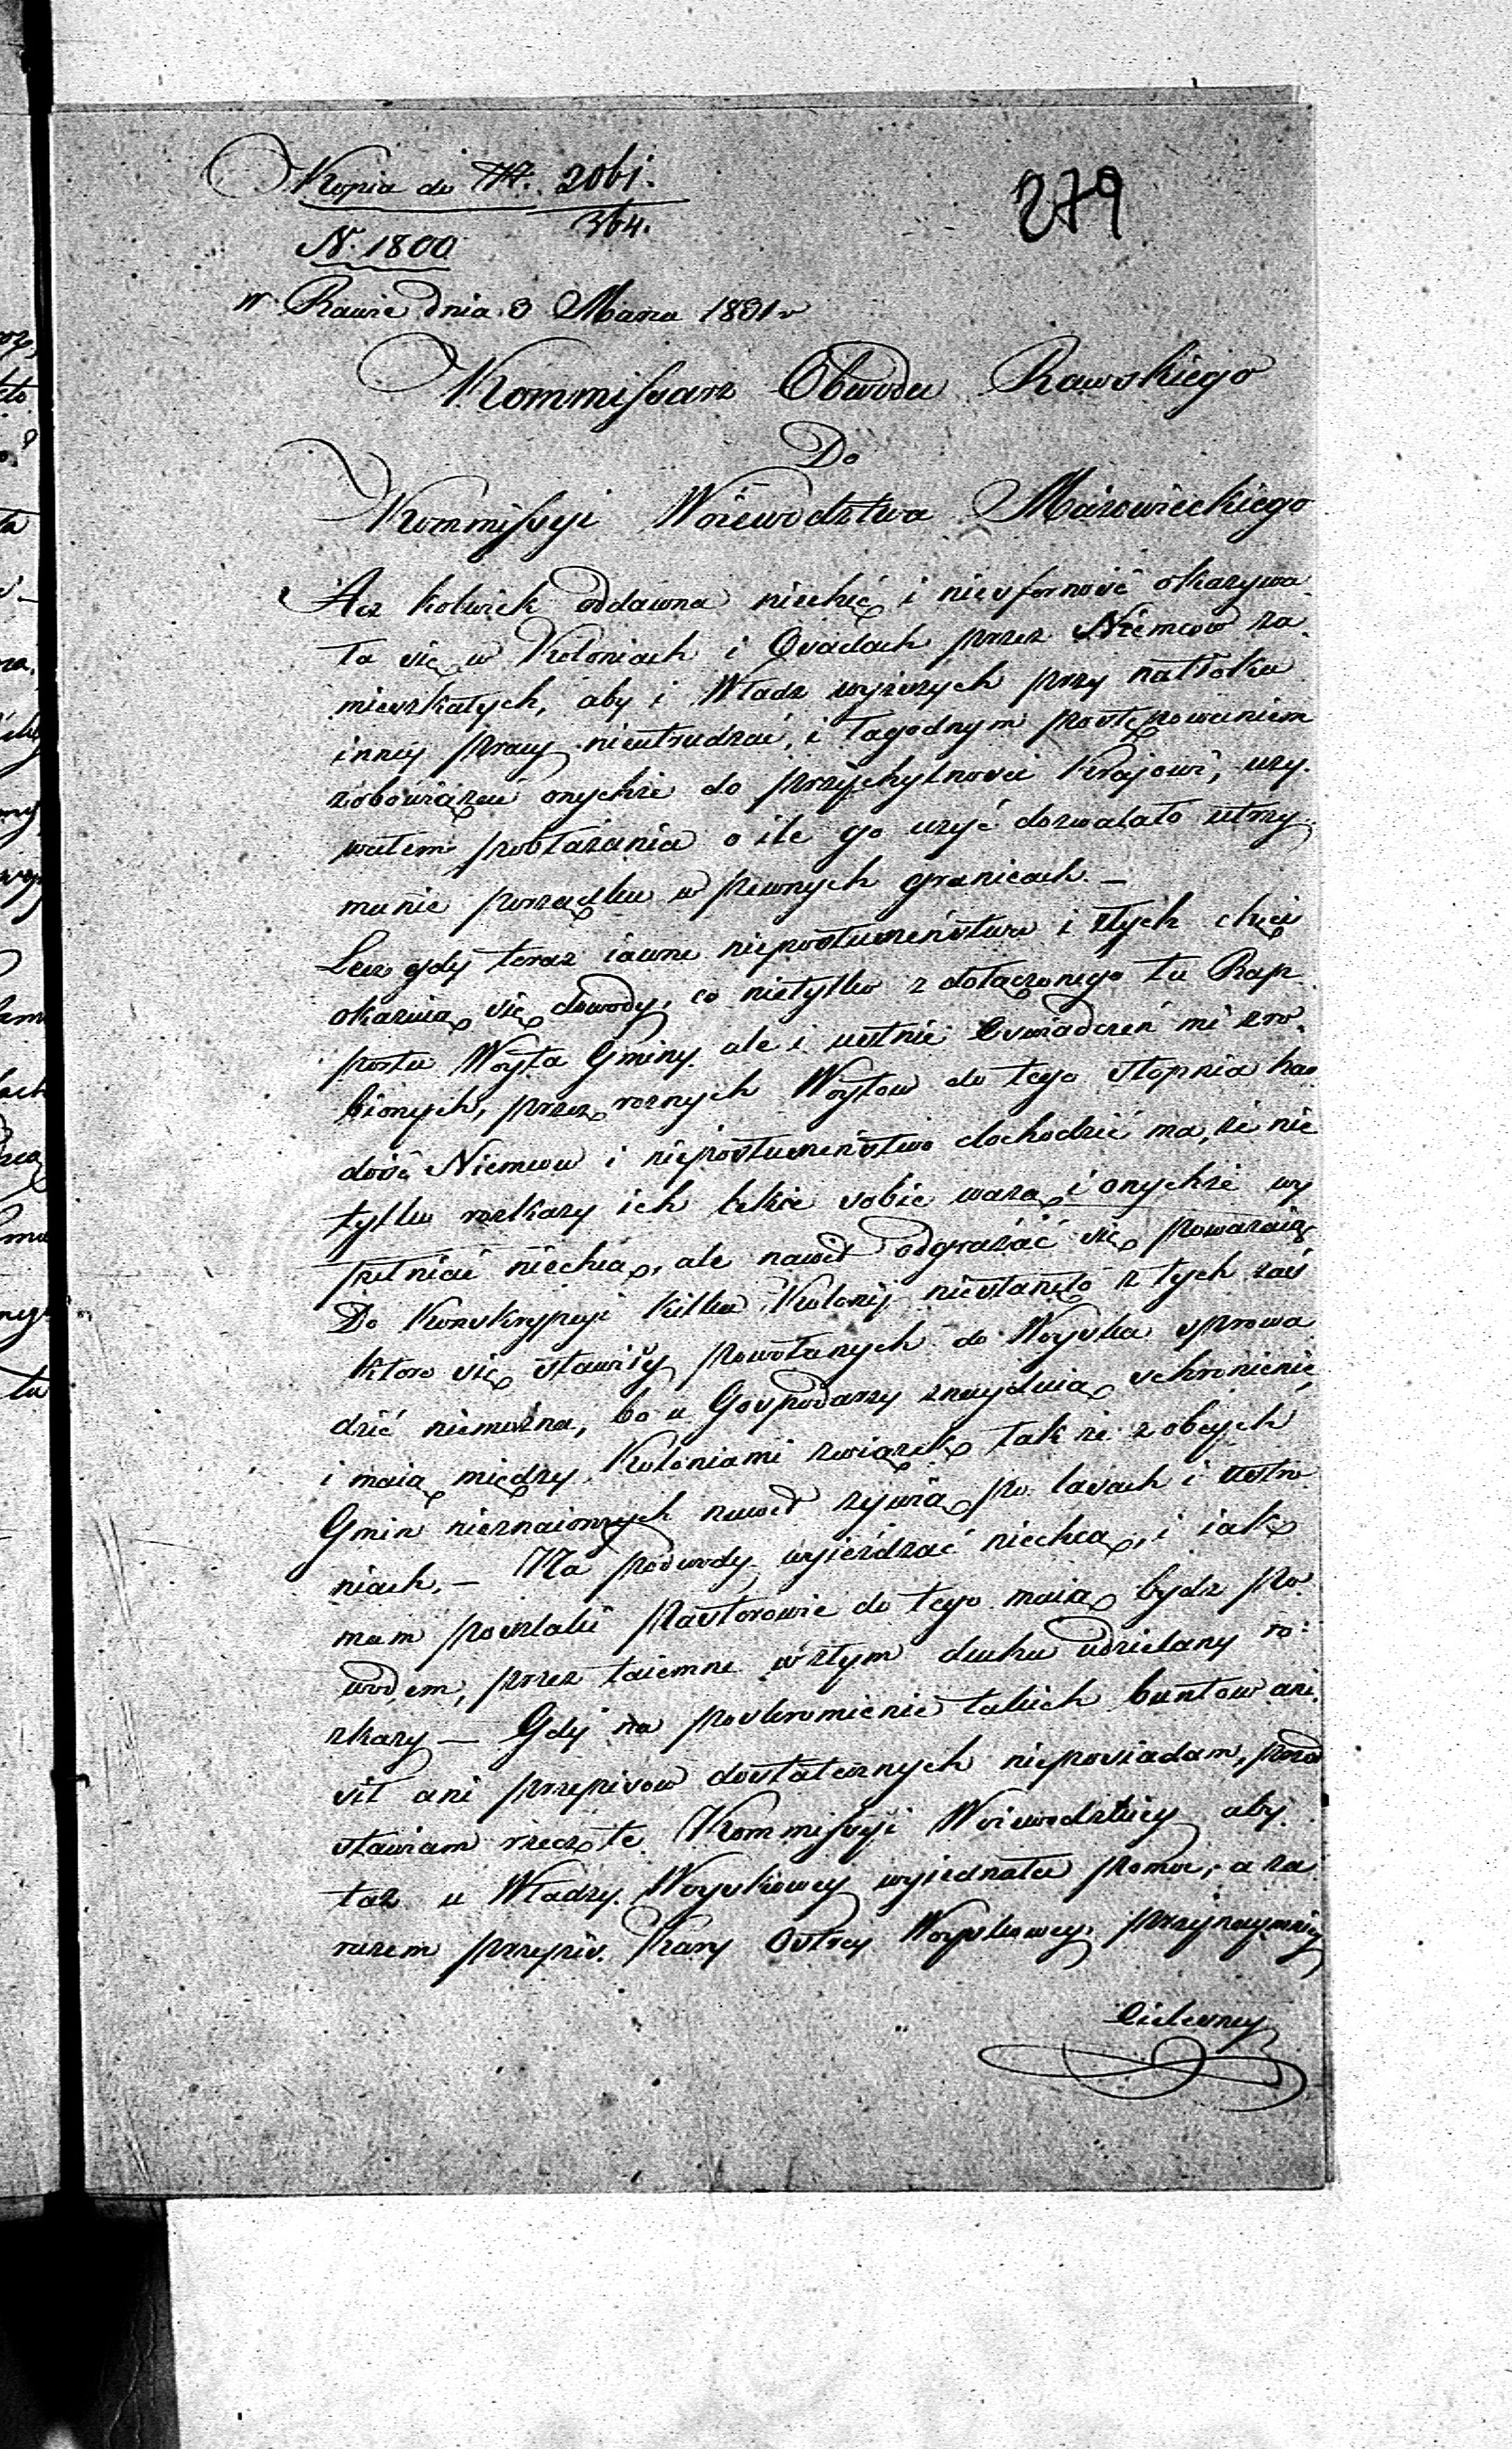 Kopia do N. 2061.
364.
279
N. 1800
w Rawie dnia 3 Marca 1831 r
Kommissarz Obwodu Rawskiego
Do
Kommissyi Woiewodztwa Mazowieckiego
Acz kolwiek oddawna niechęć i niesforność okazywa
ła się w Koloniach i Osadach przez Niemców za
mieszkałych, aby i Władz wyższych przy natłoku
inney pracy nieutrudzać, i łagodnym postępowaniem
zobowiązać onychże do przychylności Krajowi, uży
wałem pobłażania o ile go użyć dozwalało utrzy
manie porządku w pewnych granicach. —
Lecz gdy teraz iawne nieposłuszeństwa i złych chęci
okazuią się dowody, co nietylko z dołączonego tu Rap
portu Woyta Gminy ale i ustnie oswiadczeń mi zro
bionych, przez roznych Woytow do tego stopnia har
dość Niemcow i nieposłuszeństwo dochodzić ma, że nie
tylko rozkazy ich lekce sobie ważą i onychże wy
pełniać niechcą, ale nawet odgrażać się poważaią
Do Konskrypcyi kilka Kolonij niestanęło z tych zaś
ktore się stawiły powołanych do Woyska sprowa
dzić niemożna, bo u Gospodarzy znayduią schronienie
i maią między Koloniami związek tak że z obcych
Gmin nieznaiomych nawet żywią po lasach i ustro
niach. — Na podwody wyjeżdzać niechcą, i iak
mam poszlaki Pastorowie do tego maią bydz po
wodem, przez taiemne w złym duchu udzielany ro
zkazy — Gdy na poskromienie takich buntow ani
sił ani przepisow dostatecznych nieposiadam, przed
stawiam rzecz tę Kommissyi Woiewodzkiey aby
taż u Władzy Woyskowey wyiednała pomoc, a za
razem przepis Kary Ostrey Woyskowey przynaymniey